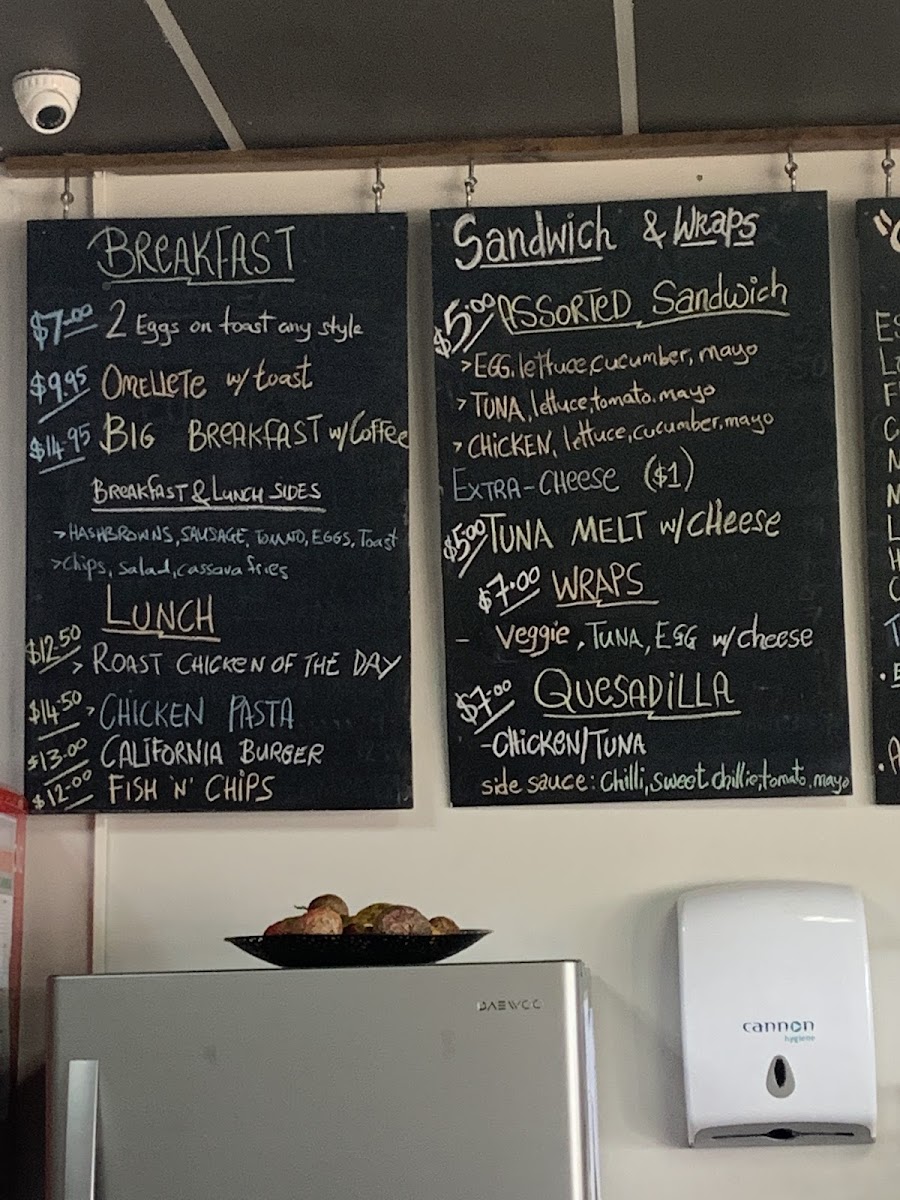 BREAKFAST
$7.00 2 Eggs on toast any style
$9.95 OMELLETE w/ toast
$14.95 BIG BREAKFAST w/ Coffee
BREAKFAST & LUNCH SIDES
>HASHBROWNS, SAUSAGE, TOMATO, EGGS, Toast
>Chips, salad, cassava fries
LUNCH
$12.50 > ROAST CHICKEN OF THE DAY
$14.50 > CHICKEN PASTA
$13.00 CALIFORNIA BURGER
$12.00 FISH 'N' CHIPS
Sandwich & Wraps
$5.00 ASSORTED Sandwich
>EGG, lettuce, cucumber, mayo
>TUNA, lettuce, tomato, mayo
>CHICKEN, lettuce, cucumber, mayo
EXTRA-CHEESE ($1)
$5.00 TUNA MELT w/ CHEESE
$7.00 WRAPS
- Veggie, TUNA, EGG w/ cheese
$7.00 QUESADILLA
-CHICKEN/TUNA
side sauce: Chilli, sweet chillie, tomato, mayo
DAEWOO
cannon
hygiene